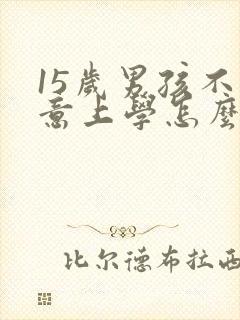 15歲男孩不
意上學怎麼
比尔德布拉西